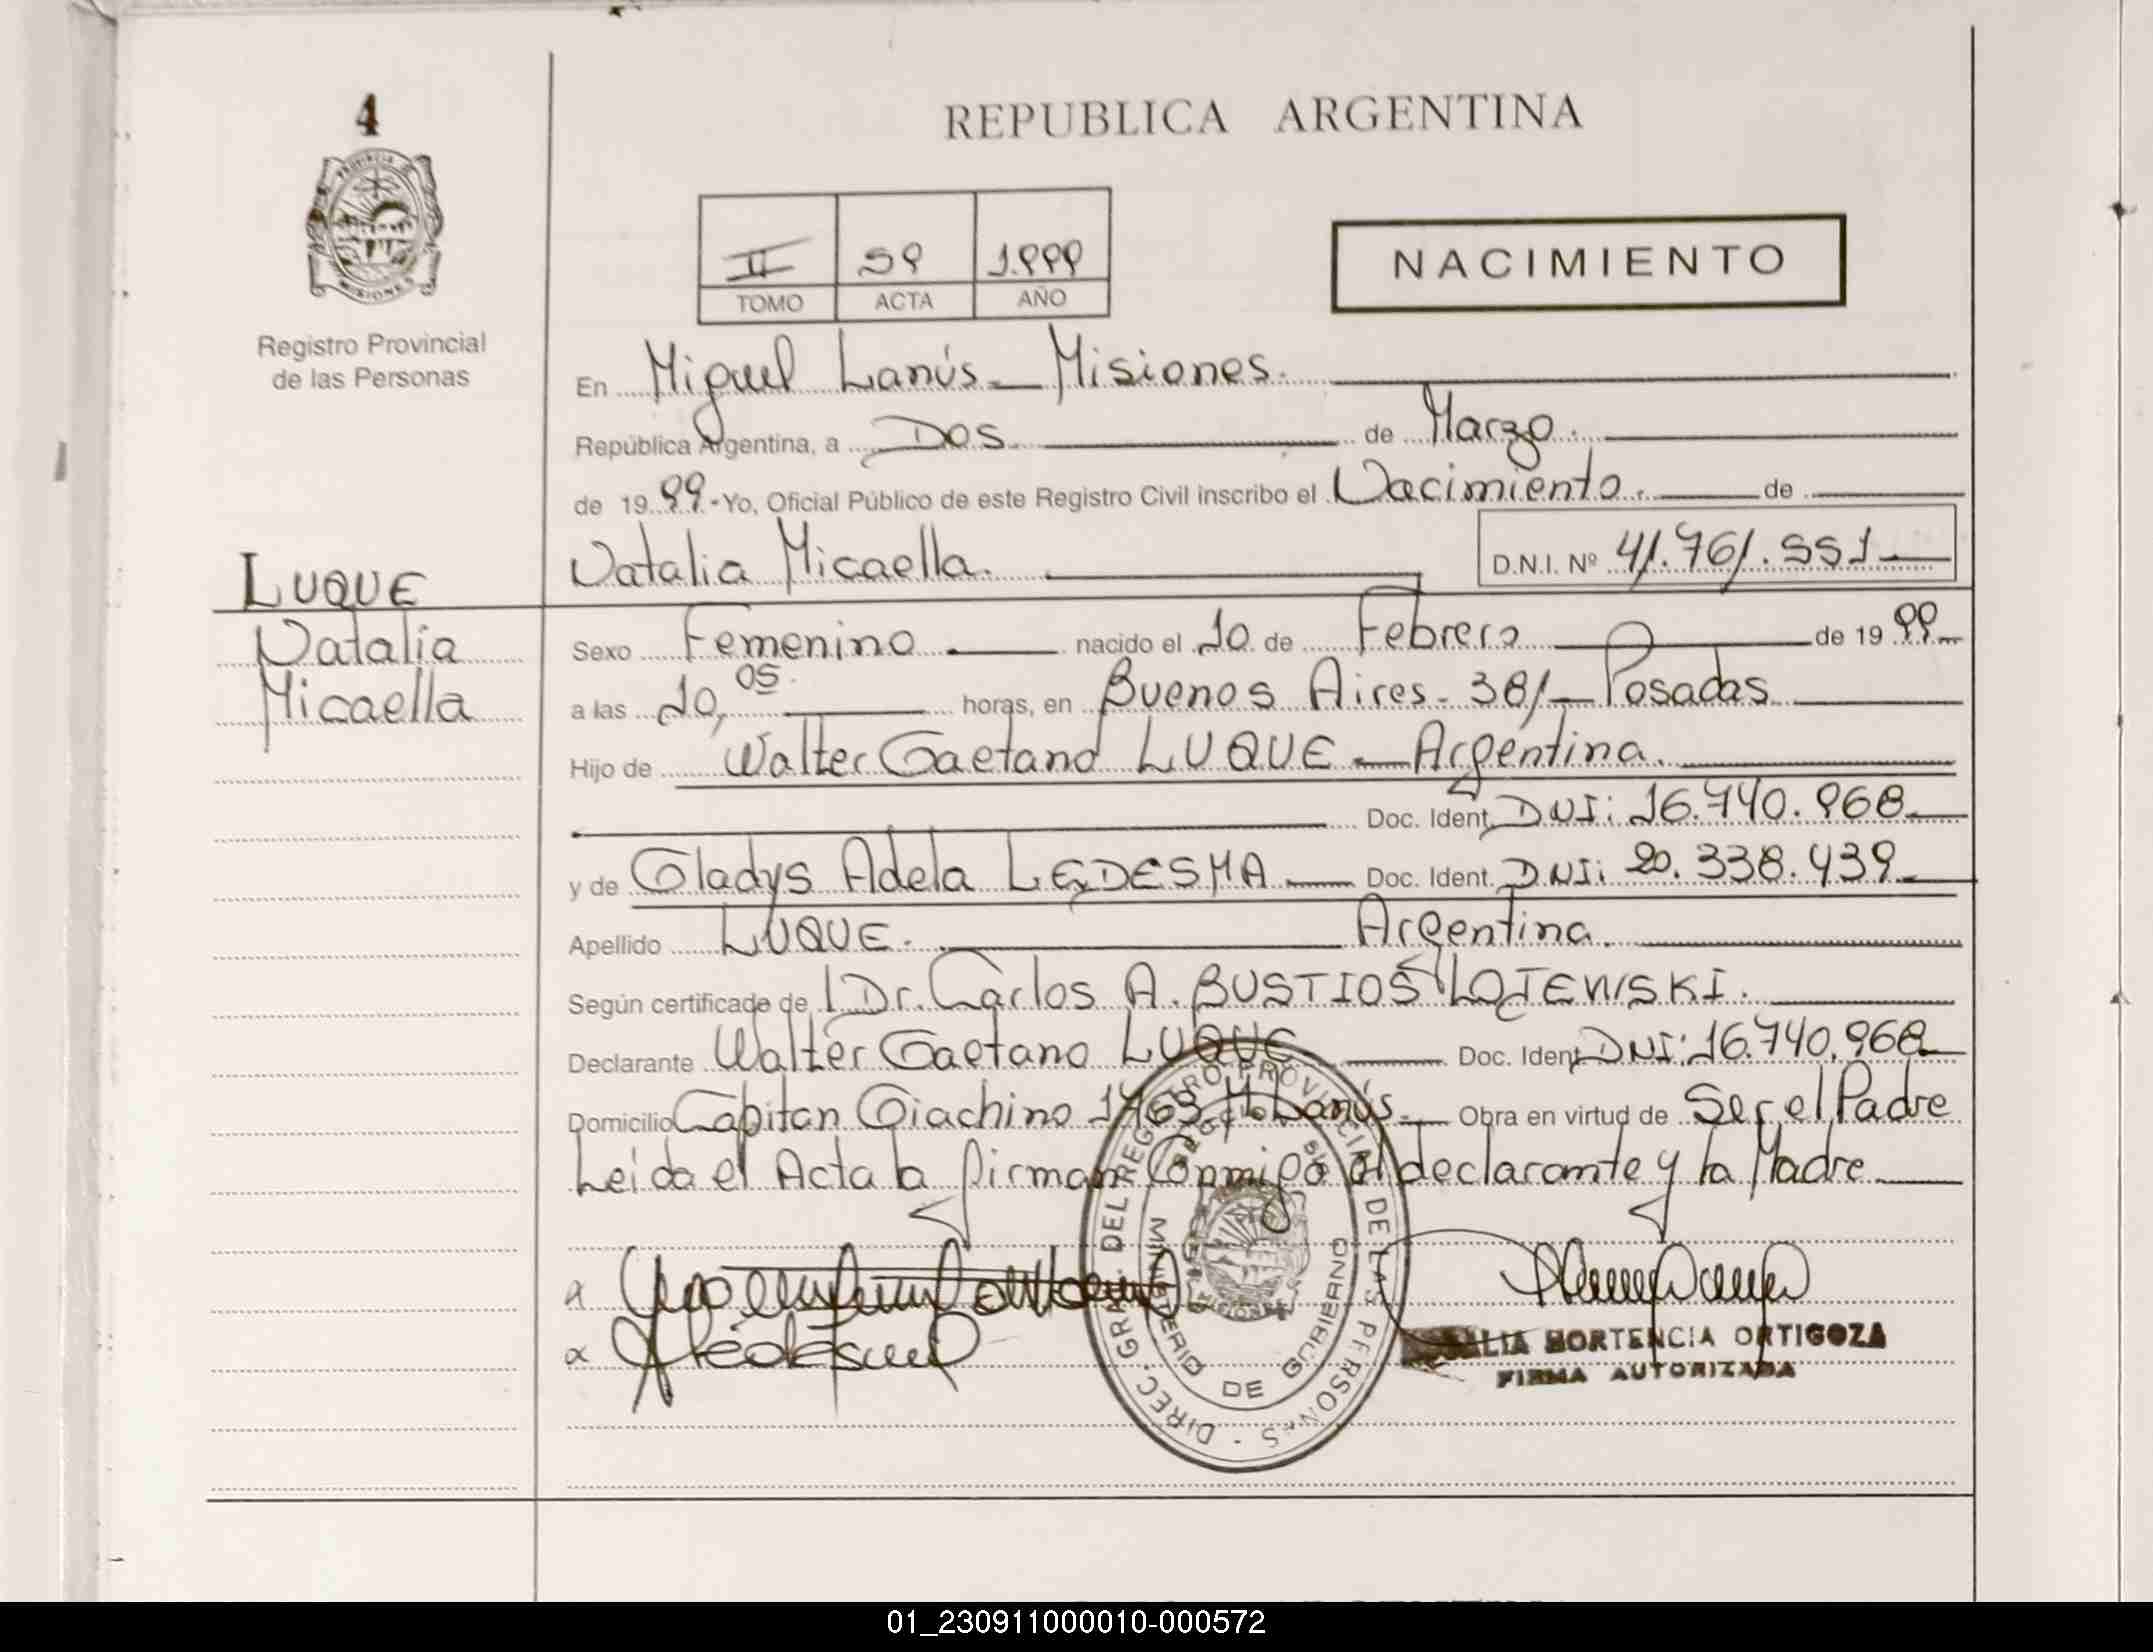 4
REPUBLICA ARGENTINA
II 59 1.999
TOMO ACTA AÑO
NACIMIENTO
Registro Provincial
de las Personas
En Miguel Lanús - Misiones.
República Argentina, a Dos de Marzo.
de 19 99.- Yo, Oficial Público de este Registro Civil inscribo el Nacimiento. de
Natalia Micaella. D.N.I. Nº 41.761.551
LUQUE
Natalia
Micaella
Sexo Femenino nacido el 10 de Febrero de 19 99
a las 10,05 horas, en Buenos Aires - 381 - Posadas
Hijo de Walter Gaetano LUQUE - Argentina.
Doc. Ident. DNI: 16.740.968
y de Gladys Adela LEDESMA Doc. Ident. DNI: 20.338.439
Apellido LUQUE. Argentina.
Según certificado de Dr. Carlos A. BUSTIOS LOJEWSKI.
Declarante Walter Gaetano LUQUE Doc. Ident. DNI: 16.740.968
Domicilio Capitan Giachino 1763 M. Lanús. Obra en virtud de Ser el Padre
Leida el Acta la firman Conmigo el declarante y la Madre
DIREC. GRAL. DEL REGISTRO PROVINCIAL DE LAS PERSONAS
MINISTERIO DE GOBIERNO
HORTENCIA ORTIGOZA
FIRMA AUTORIZADA
01_230911000010-000572